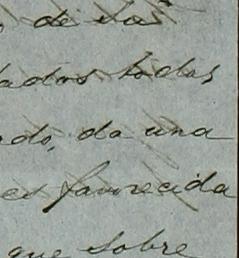 de sus
dados todos
do, da una
favorecida
que sobre